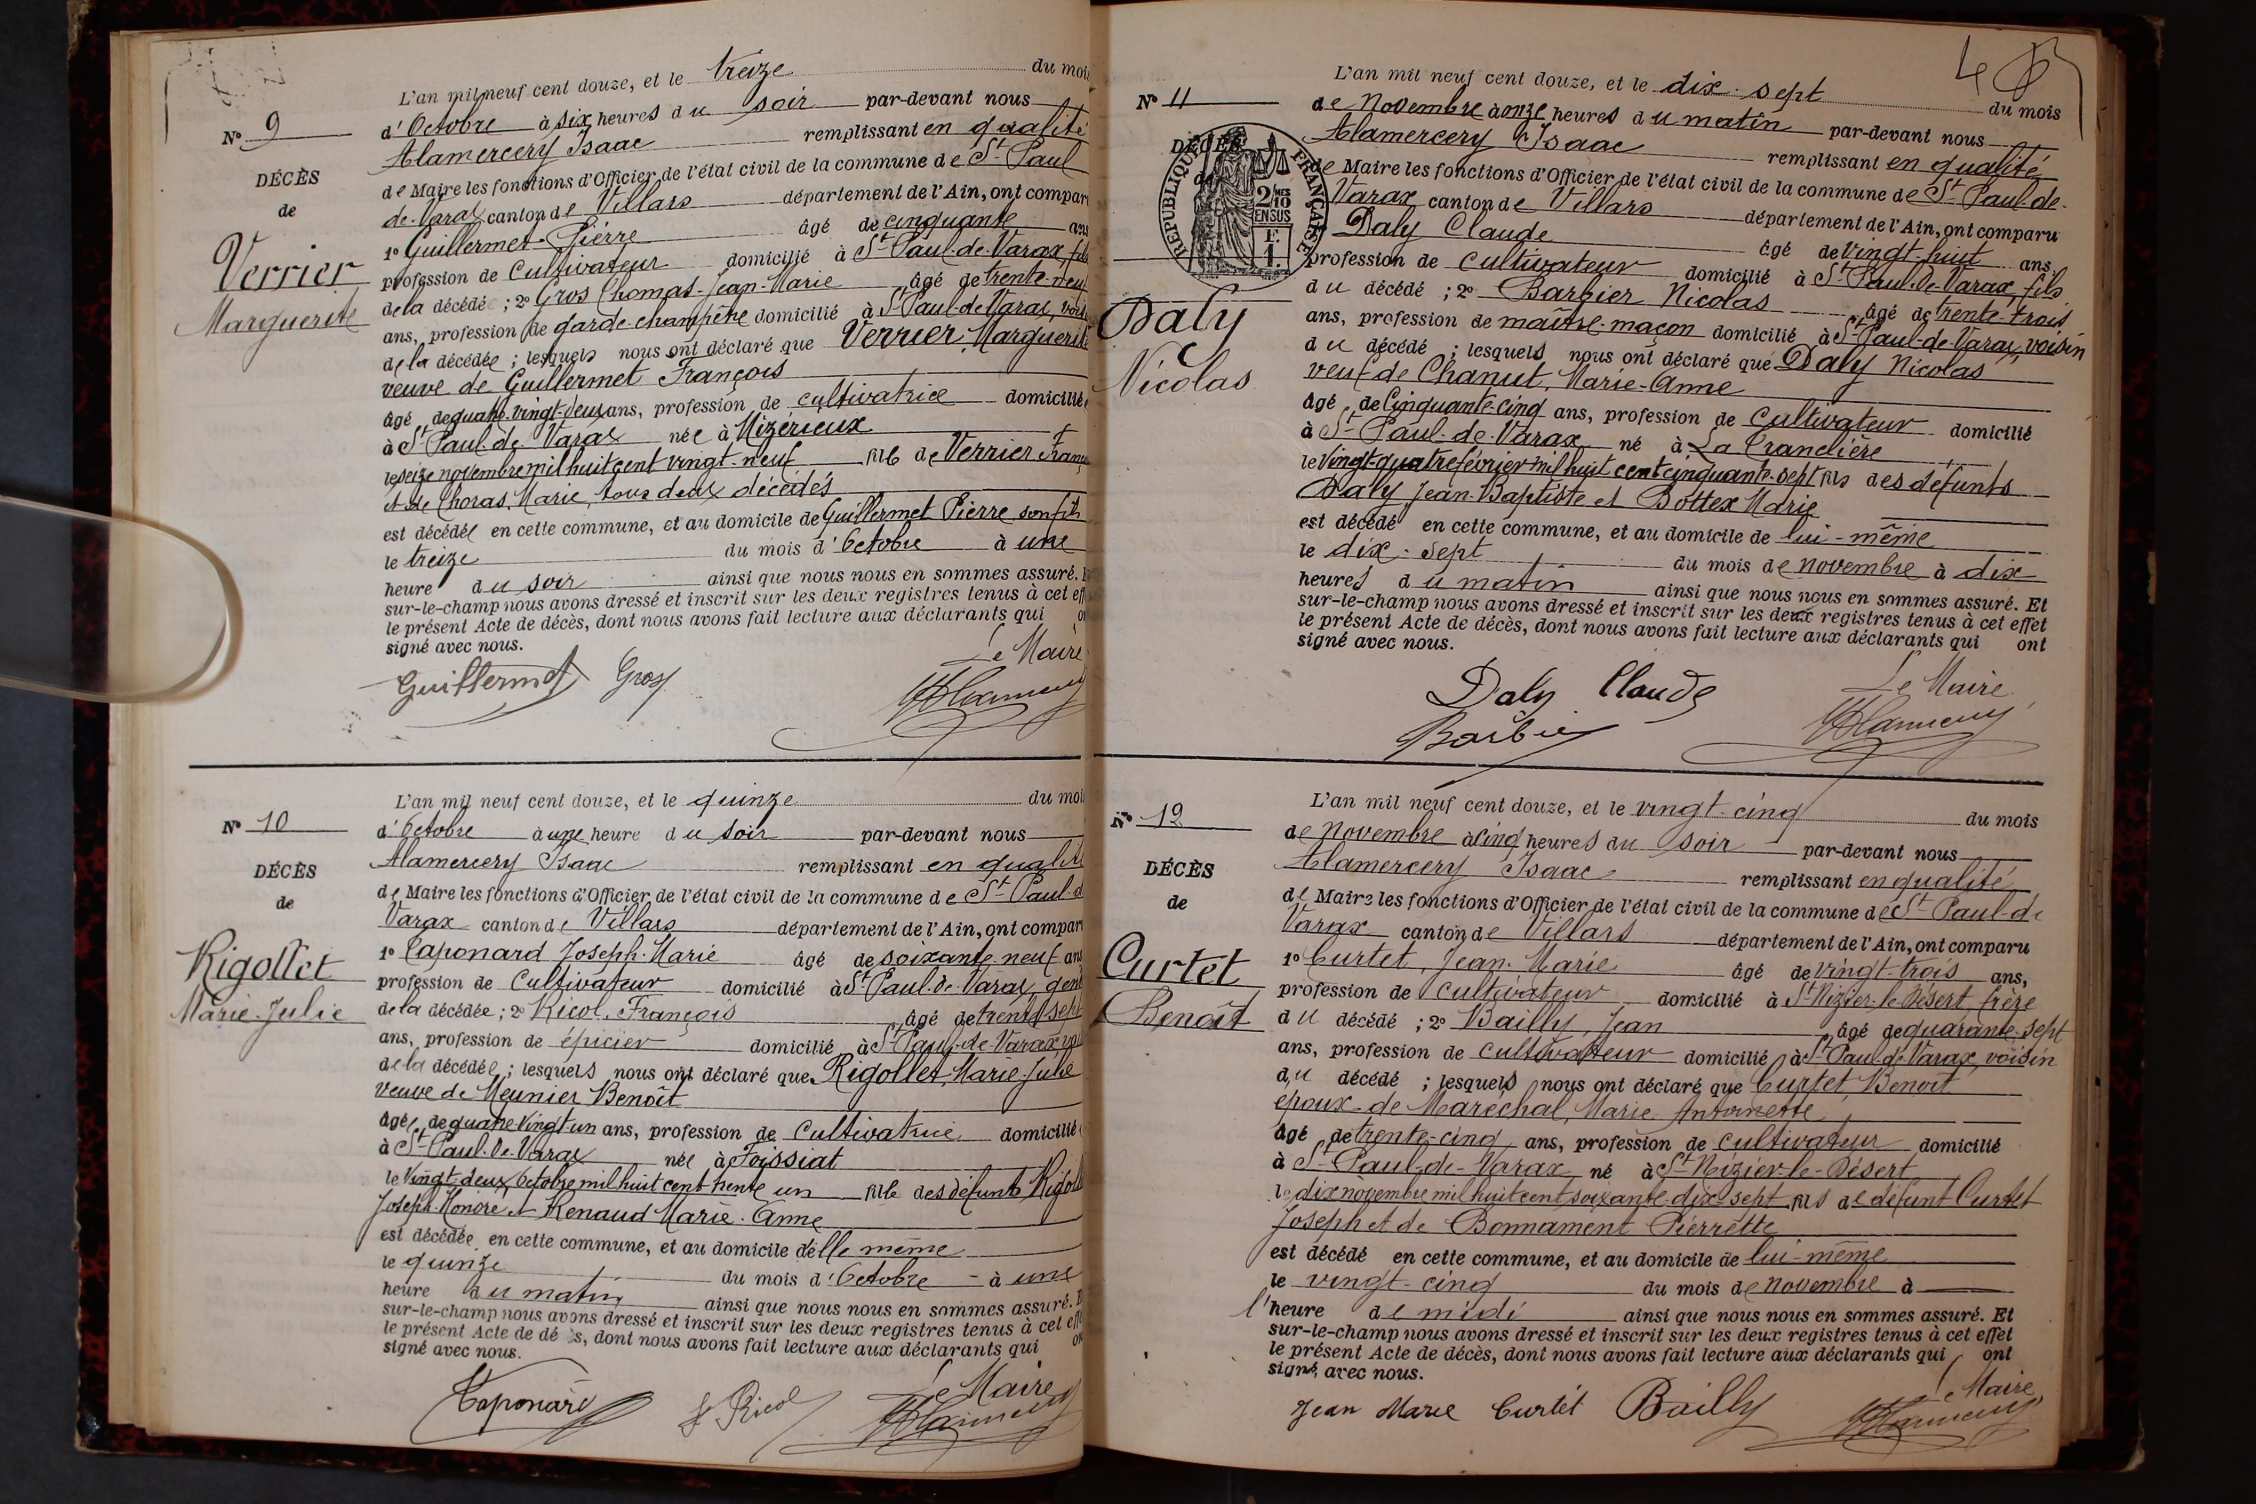 N° 9
DÉCÈS
de
Verrier
Marguerite
L'an mil neuf cent douze, et le treize du mois
d'Octobre à six heures du soir par-devant nous
Alamercery Isaac remplissant en qualité
de Maire les fonctions d'Officier de l'état civil de la commune de St Paul
de Varax canton de Villars département de l'Ain, ont comparu
1° Guillermet Pierre âgé de cinquante ans
profession de Cultivateur domicilié à St Paul-de-Varax fils
de la décédée ; 2° Gros Thomas-Jean-Marie âgé de trente-neuf
ans, profession de garde-champêtre domicilié à St Paul-de-Varax, voisin
de la décédée ; lesquels nous ont déclaré que Verrier Marguerite
veuve de Guillermet François
âgée de quatre-vingt-deux ans, profession de cultivatrice domiciliée
à St Paul-de-Varax née à Mizérieux
le seize novembre mil huit cent vingt-neuf fille de Verrier François
et de Choras, Marie, tous deux décédés
est décédée en cette commune, et au domicile de Guillermet Pierre son fils
le treize du mois d'Octobre à une
heure du soir ainsi que nous nous en sommes assuré. Et
sur-le-champ nous avons dressé et inscrit sur les deux registres tenus à cet eff
le présent Acte de décès, dont nous avons fait lecture aux déclarants qui on
signé avec nous.
Le Maire
Guillermet Gros
N° 10
DÉCÈS
de
Rigollet
Marie-Julie
L'an mil neuf cent douze, et le quinze du moi
d'Octobre à une heure du soir par-devant nous
Alamercery Isaac remplissant en qualité
de Maire les fonctions d'Officier de l'état civil de la commune de St Paul-d
Varax canton de Villars département de l'Ain, ont comparu
1° Taponard Joseph-Marie âgé de soixante-neuf ans
profession de Cultivateur domicilié à St Paul-de-Varax, gend
de la décédée ; 2° Ricol, François âgé de trente-sept
ans, profession de épicier domicilié à St Paul-de-Varax, voi
de la décédée ; lesquels nous ont déclaré que Rigollet, Marie-Julie
veuve de Meunier Benoît
âgée de quatre-vingt un ans, profession de Cultivatrice domiciliée
à St Paul-de-Varax née à Foissiat
le Vingt-deux Octobre mil huit cent trente un fille des défunts Rigoll
Joseph-Honoré et Renaud Marie-Anne
est décédée en cette commune, et au domicile d'elle même
le quinze du mois d'Octobre à une
heure du matin ainsi que nous nous en sommes assuré. E
sur-le-champ nous avons dressé et inscrit sur les deux registres tenus à cet eff
le présent Acte de décès, dont nous avons fait lecture aux déclarants qui on
signé avec nous.
Le Maire
Taponard F Ricol
N° 11
DÉCÈS
de
RÉPUBLIQUE FRANÇAISE
2/10 MES
EN SUS
F.
1.
Daly
Nicolas
L'an mil neuf cent douze, et le dix-sept du mois
de Novembre à onze heures du matin par-devant nous
Alamercery Isaac remplissant en qualité
de Maire les fonctions d'Officier de l'état civil de la commune de St Paul-de-
Varax canton de Villars département de l'Ain, ont comparu
Daly Claude âgé de vingt-huit ans
profession de cultivateur domicilié à St Paul-de-Varax, fils
du décédé ; 2° Barbier Nicolas âgé de trente-trois
ans, profession de maître-maçon domicilié à St Paul-de-Varax, voisin
du décédé ; lesquels nous ont déclaré que Daly Nicolas
veuf de Chanut, Marie-Anne
âgé de Cinquante-cinq ans, profession de Cultivateur domicilié
à St Paul-de-Varax né à La Tranclière
le Vingt-quatre février mil huit cent cinquante-sept fils des défunts
Daly Jean-Baptiste et Bottex Marie
est décédé en cette commune, et au domicile de lui-même
le dix-sept du mois de novembre à dix
heures du matin ainsi que nous nous en sommes assuré. Et
sur-le-champ nous avons dressé et inscrit sur les deux registres tenus à cet effet
le présent Acte de décès, dont nous avons fait lecture aux déclarants qui ont
signé avec nous.
Daly Claude Le Maire
Barbier
N° 12
DÉCÈS
de
Curtet
Benoît
L'an mil neuf cent douze, et le vingt-cinq du mois
de novembre à cinq heures du soir par-devant nous
Alamercery Isaac remplissant en qualité
de Maire les fonctions d'Officier de l'état civil de la commune de St Paul-de
Varax canton de Villars département de l'Ain, ont comparu
1° Curtet, Jean-Marie âgé de vingt-trois ans,
profession de cultivateur domicilié à St Nizier-le-Désert, frère
du décédé ; 2° Bailly, Jean âgé de quarante-sept
ans, profession de cultivateur domicilié à St Paul-de-Varax, voisin
du décédé ; lesquels nous ont déclaré que Curtet, Benoît
époux de Maréchal, Marie-Antoinette
âgé de trente-cinq ans, profession de cultivateur domicilié
à St Paul-de-Varax né à St Nizier-le-Désert
le dix novembre mil huit cent soixante-dix-sept fils de défunt Curtet
Joseph et de Bonnament Pierrette
est décédé en cette commune, et au domicile de lui-même
le vingt-cinq du mois de novembre à
l'heure de midi ainsi que nous nous en sommes assuré. Et
sur-le-champ nous avons dressé et inscrit sur les deux registres tenus à cet effet
le présent Acte de décès, dont nous avons fait lecture aux déclarants qui ont
signé avec nous.
Le Maire
Jean Marie Curtet Bailly